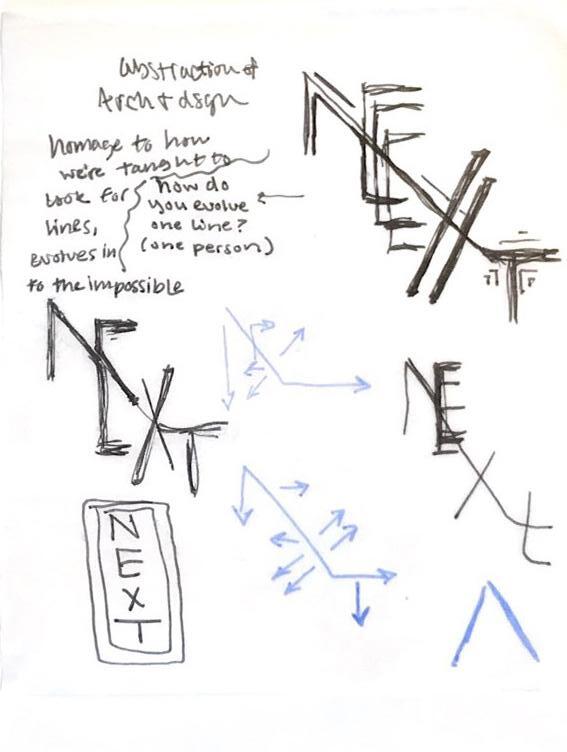 abstraction of
Arch + dsgn
homage to how
we're taught to
look for
lines,
evolves in
to the impossible
how do
you evolve
one line?
(one person)
NEXT
NEXT
NEXt
N
E
X
T